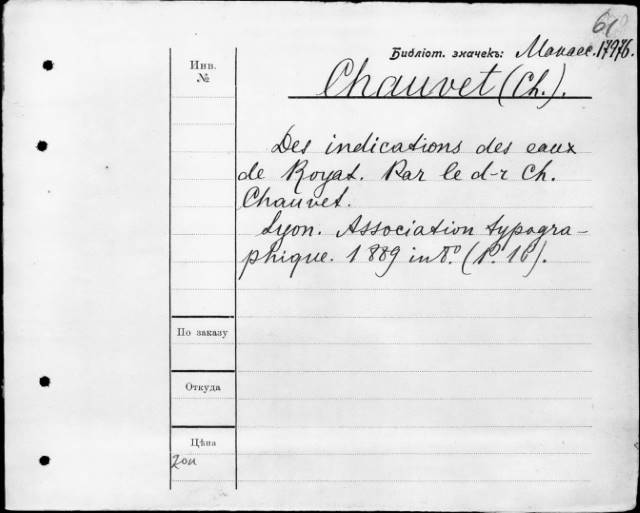 Библіот. значекъ: Манасс. 17976.
Инв.
№
Chauvet (Ch.).
Des indications des eaux
de Royat. Par le d-r Ch.
Chauvet.
Lyon. Association typogra-
phique. 1889 in 8º. (P. 16).
По заказу
Откуда
Цѣна